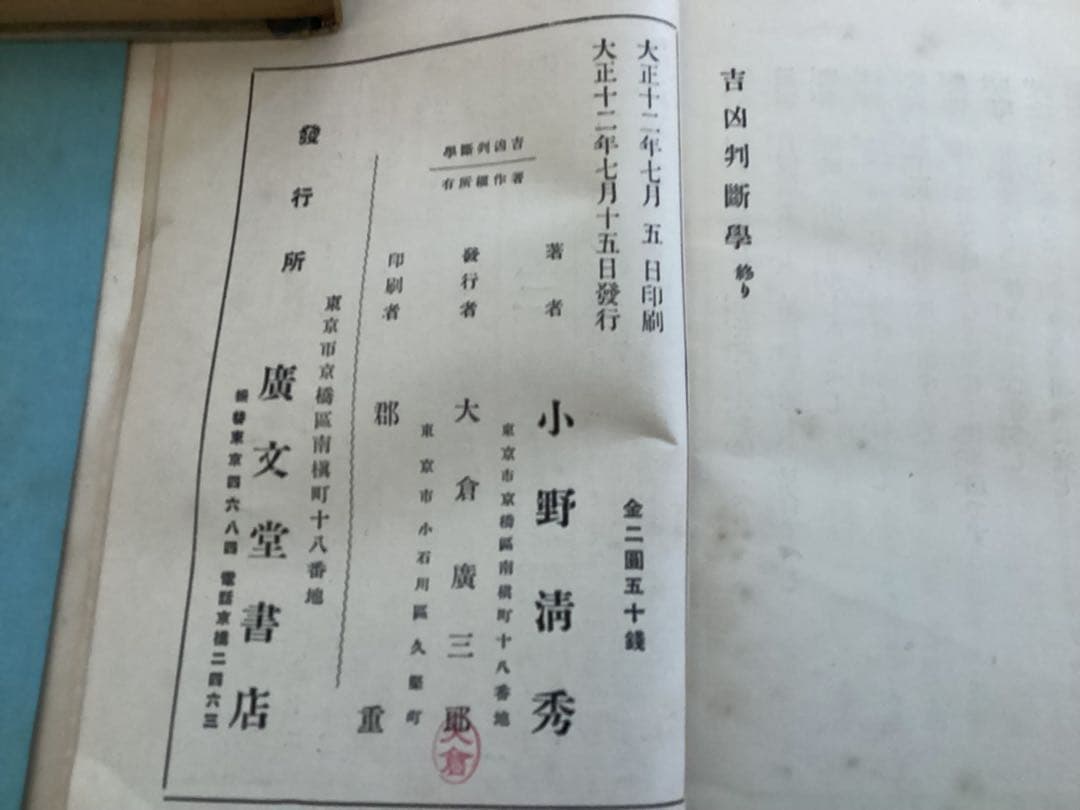 吉凶判斷學 終り
大正十二年七月 五 日印刷
大正十二年七月十五日發行
金二圓五十錢
吉凶判斷學
著作權所有
著者 小野淸秀
東京市京橋區南槇町十八番地
發行者 大倉廣三郎
東京市小石川區久堅町
印刷者 郡 重
東京市京橋區南槇町十八番地
發行所 廣文堂書店
振替東京四六八四 電話京橋二四六三
大倉